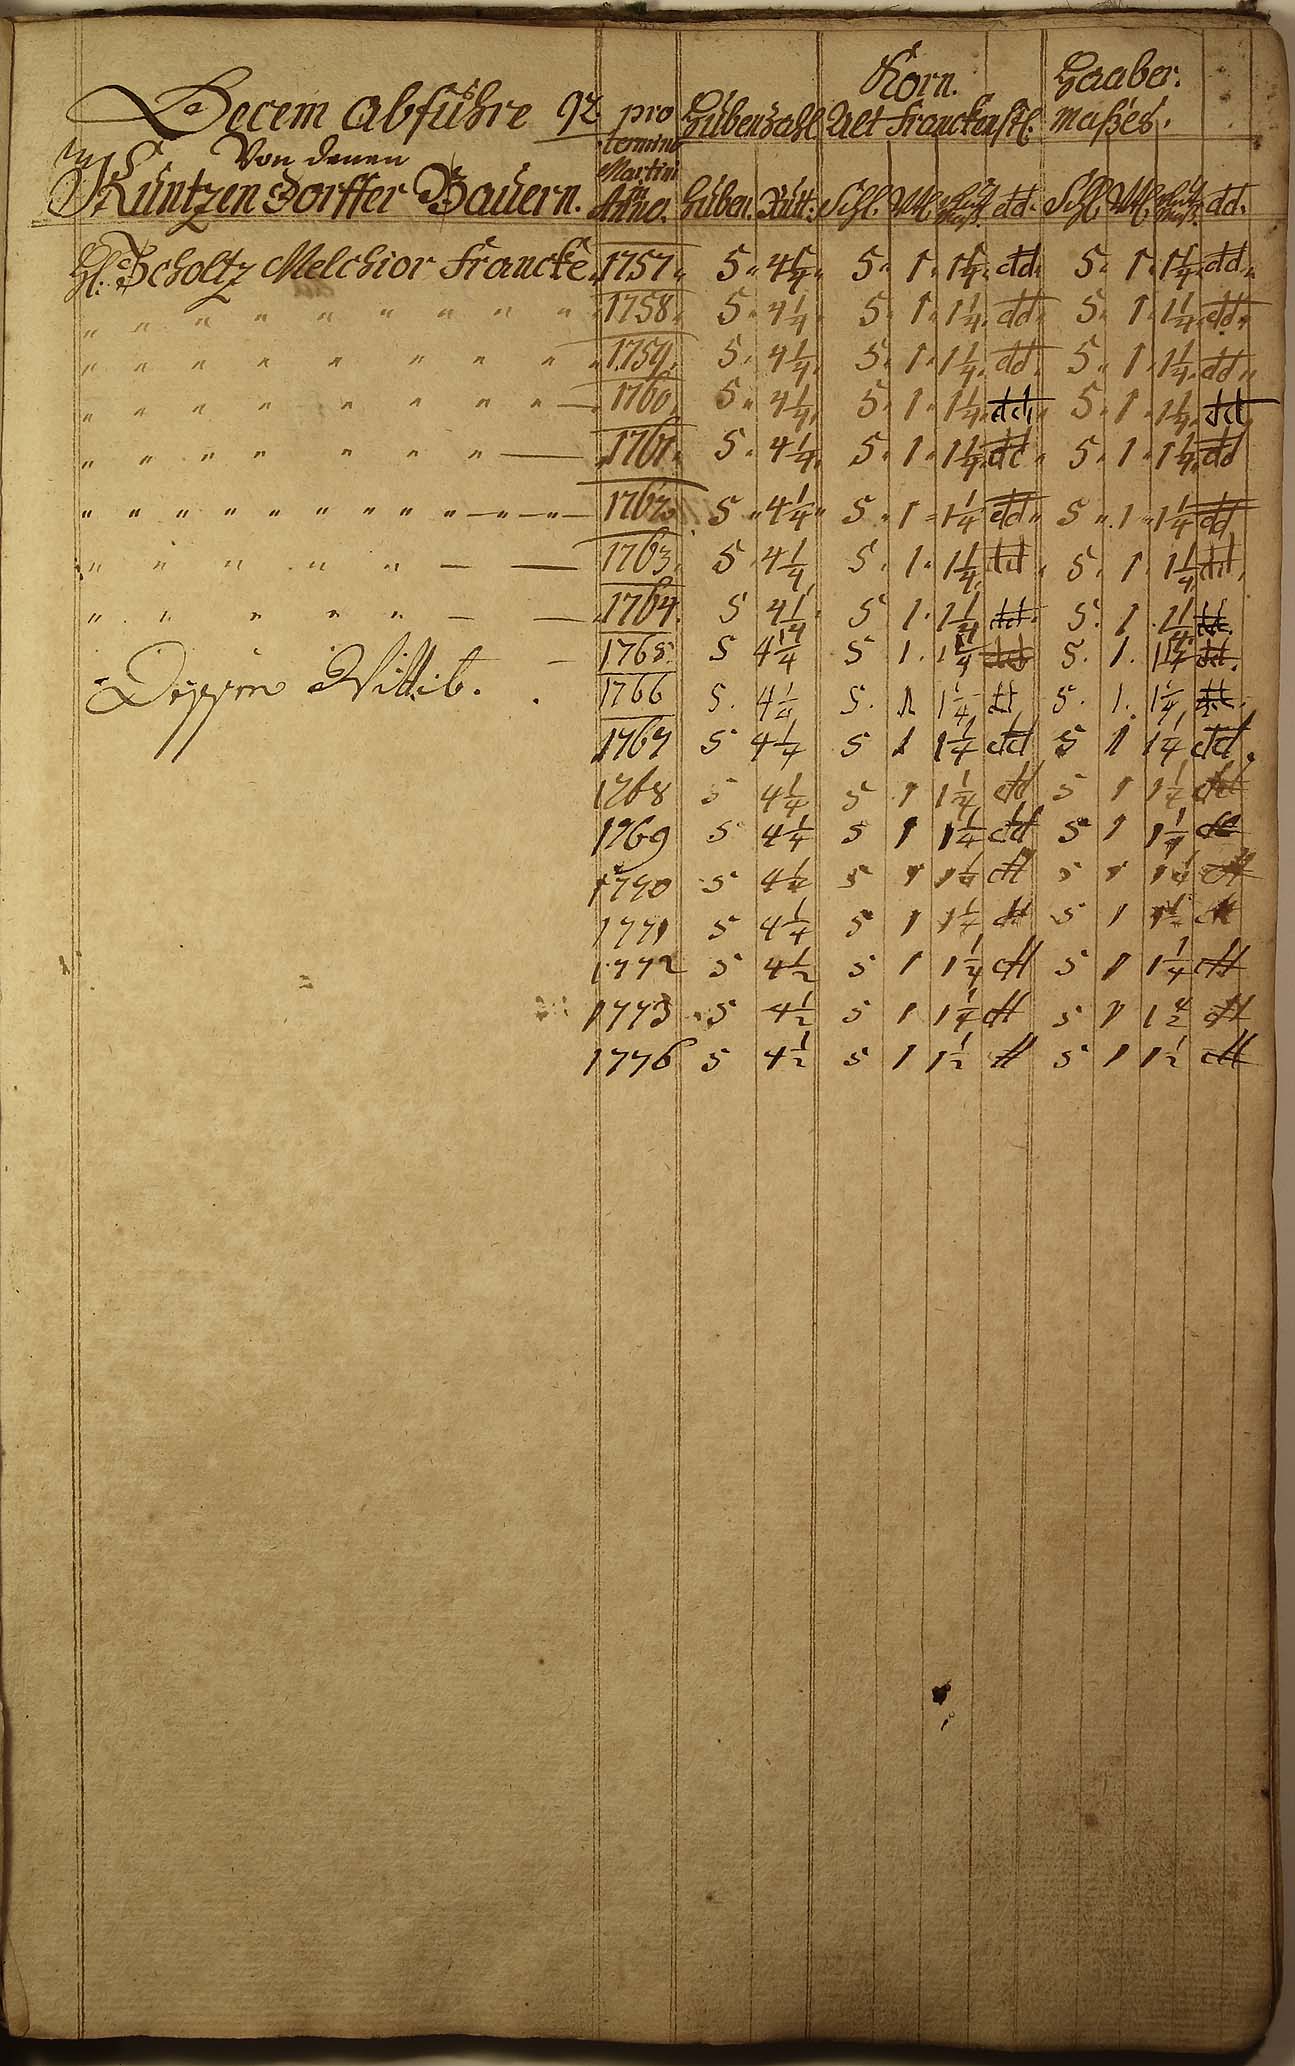 Decem abführe 92 pro Hübenzahl Korn. Haaber.
termino Alt Franckenst. Maßes.
Von denen Martini
Küntzendorffer Bauern. in Anno. Hüben. Rutt: Schl. Vtl. dd. Schl. Vtl. dd.
Scholtz Melchior Francke. 1757. 5. 4 1/4. 5. 1. 1 1/4. dd. 5. 1. 1 1/4. dd.
" " " " " " " " " " 1758. 5. 4 1/4. 5. 1. 1 1/4. dd. 5. 1. 1 1/4. dd.
" " " " " " " " " 1759. 5. 4 1/4. 5. 1. 1 1/4. dd. 5. 1. 1 1/4. dd.
" " " " " " " " " — 1760. 5. 4 1/4. 5. 1. 1 1/4. dd. 5. 1. 1 1/4. dd.
" " " " " " " — 1761. 5. 4 1/4. 5. 1. 1 1/4. dd. 5. 1. 1 1/4. dd
" " " " " " " " " " " " — " — " — 1762. 5 " 4 1/4 " 5. 1 " 1 1/4 dd " 5 " 1 " 1 1/4 dd
" " " " " — — 1763. 5. 4 1/4 5. 1. 1 1/4. dd. 5. 1. 1 1/4 dd.
" " " " " " — — 1764. 5 4 1/4. 5 1. 1 1/4 dd. 5. 1. 1 1/4 dd.
— 1765. 5 4 1/4 5 1. 1 1/4 dd 5. 1. 1 1/4 dd.
Wittib. 1766 5. 4 1/4 5. 1 1 1/4 dd 5. 1. 1 1/4 dd.
1767 5 4 1/4 5 1 1 1/4 dd 5 1 1 1/4 dd.
1768 5 4 1/4 5 1 1 1/4 dd 5 1 1 1/4 dd
1769 5 4 1/4 5 1 1 1/4 dd 5 1 1 1/4 dd
1770 5 4 1/2 5 1 dd 5 1 dd
1771 5 4 1/4 5 1 1 1/4 dd 5 1 1 1/2 dd
1772 5 4 1/2 5 1 1 1/4 dd 5 1 1 1/4 dd
1773 5 4 1/2 5 1 1 1/4 dd 5 1 dd
1776 5 4 1/2 5 1 1 1/2 dd 5 1 1 1/2 dd